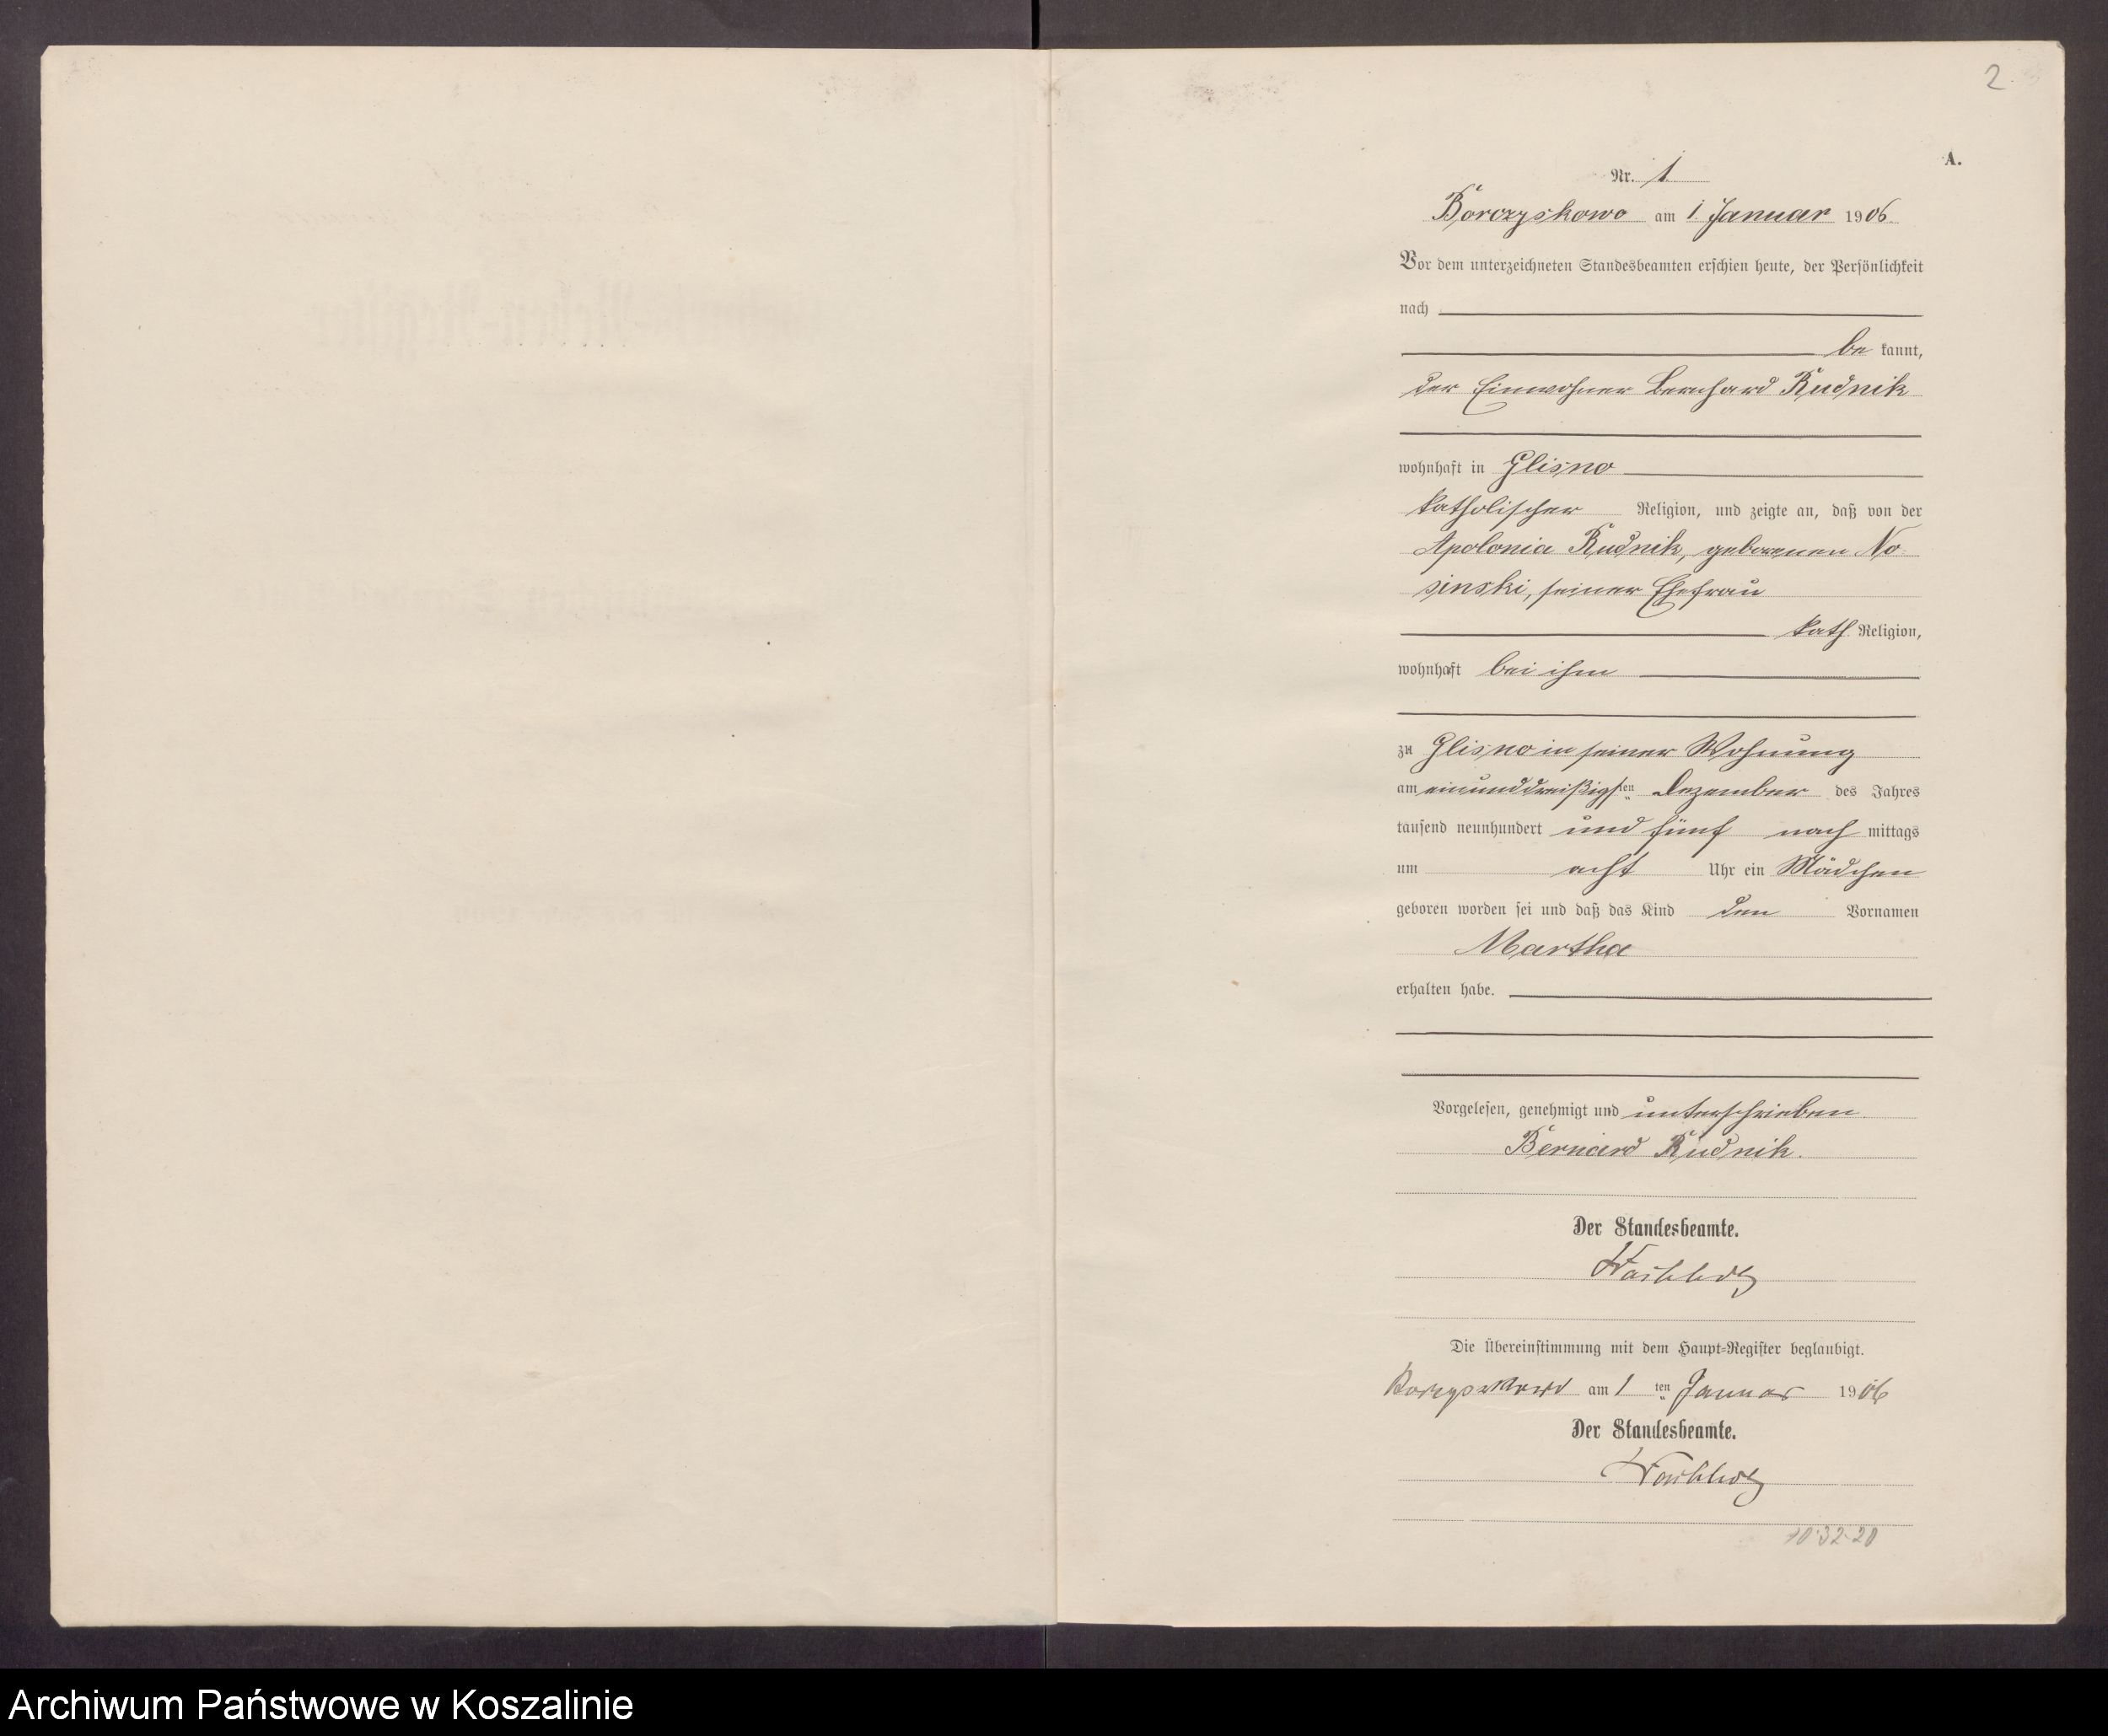 2
A.
Nr. 1
Borczyskowo am 1. Januar 1906.
Vor dem unterzeichneten Standesbeamten erschien heute, der Persönlichkeit
nach
be kannt,
der Einwohner Bernhard Rudnik
wohnhaft in Glisno
katholischer Religion, und zeigte an, daß von der
Apolonia Rudnik, geborenen No-
sinski, seiner Ehefrau
kath. Religion,
wohnhaft bei ihm
zu Glisno in seiner Wohnung
am einunddreißigsten Dezember des Jahres
tausend neunhundert und fünf nach mittags
um acht Uhr ein Mädchen
geboren worden sei und daß das Kind den Vornamen
Martha
erhalten habe.
Vorgelesen, genehmigt und unterschrieben.
Bernard Rudnik.
Der Standesbeamte.
Die Übereinstimmung mit dem Haupt-Register beglaubigt.
am 1 ten Januar 1906
Der Standesbeamte.
Archiwum Państwowe w Koszalinie